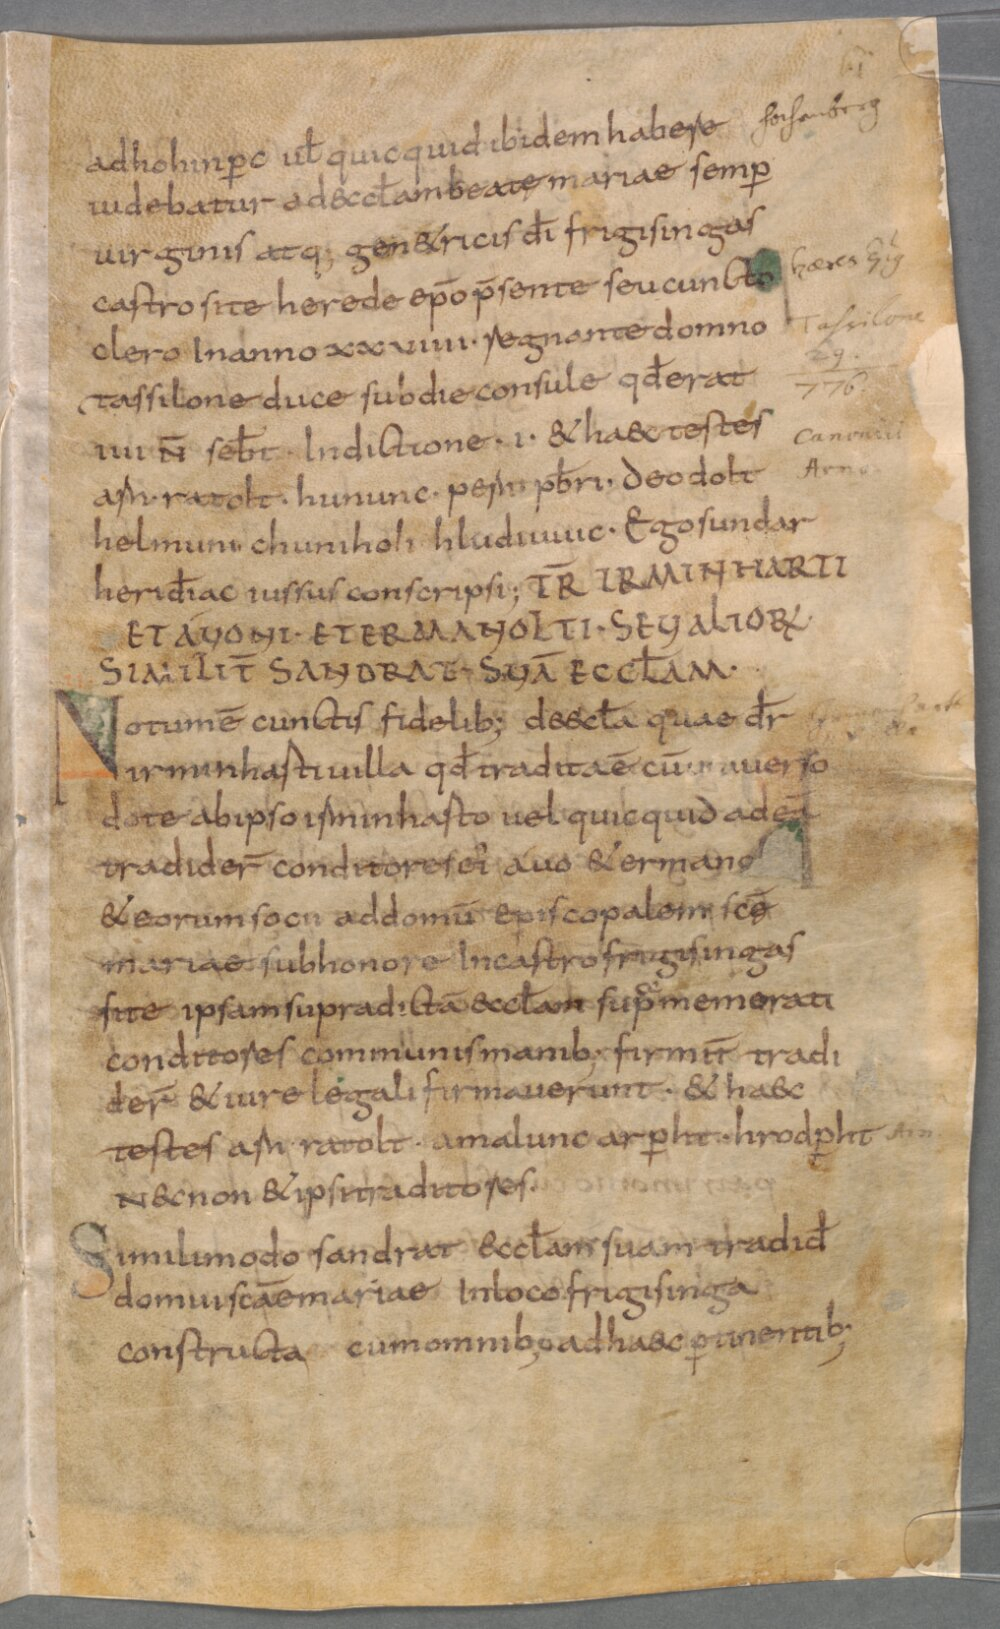 hohenberg
adhohinꝑc ul̄ quicquid ibidem habere
uidebatur ad eccl̄am beatę mariae semꝑ
uirginis atq; gen&ricis dī frigisingas
castro site herede ep̄o p̄sente seu cuncto
clero In anno xxuiiii· regnante domno
Tassilone
29.
776
tassilone duce sub die consule qd̄ erat
iiii N̄ seb̄t· Indictione· i· & haec testes
Canonici
Arno
arn· ratolt· hununc· pern pb̄ri· deodolt
helmuni chuniholi hludiuuic· Ego sundar
heri dīac iussus conscripsi; TR̄ IRMINHARTI
ET AVONI· ET ERMANOLTI· SEV ALIORꝜ
SIMILIT̄ SANDRAT· SVĀ ECCL̄AM·
Notum ē cunctis fidelib; de eccl̄a quae dr̄
irminharti uilla qd̄ tradita ē cū uniuerso
dote ab ipso irminharto uel quicquid ad eā
tradider̄ conditores ei auo & ermano
& eorum socii ad domū episcopalem scē
mariae sub honore In castro frigisingas
site ipsam supradictā eccl̄am sup̄memorati
conditores communis manib; firmit̄ tradi
der̄ & iure legali firmauerunt· & haec
testes arn ratolt· amalunc arꝑht· hrodꝑht
Necnon & ipsi traditores·
Simili modo sandrat eccl̄am suam tradid̄
domui scāe mariae In loco frigisinga
constructa cum omnib; ad haec ꝑtinentib;